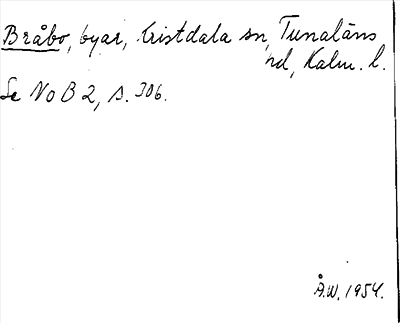 Bråbo, byar, Kristdala sn, Tunaläns
hd, Kalm. l.
Se NoB 2, s. 306.
Å.W. 1954.